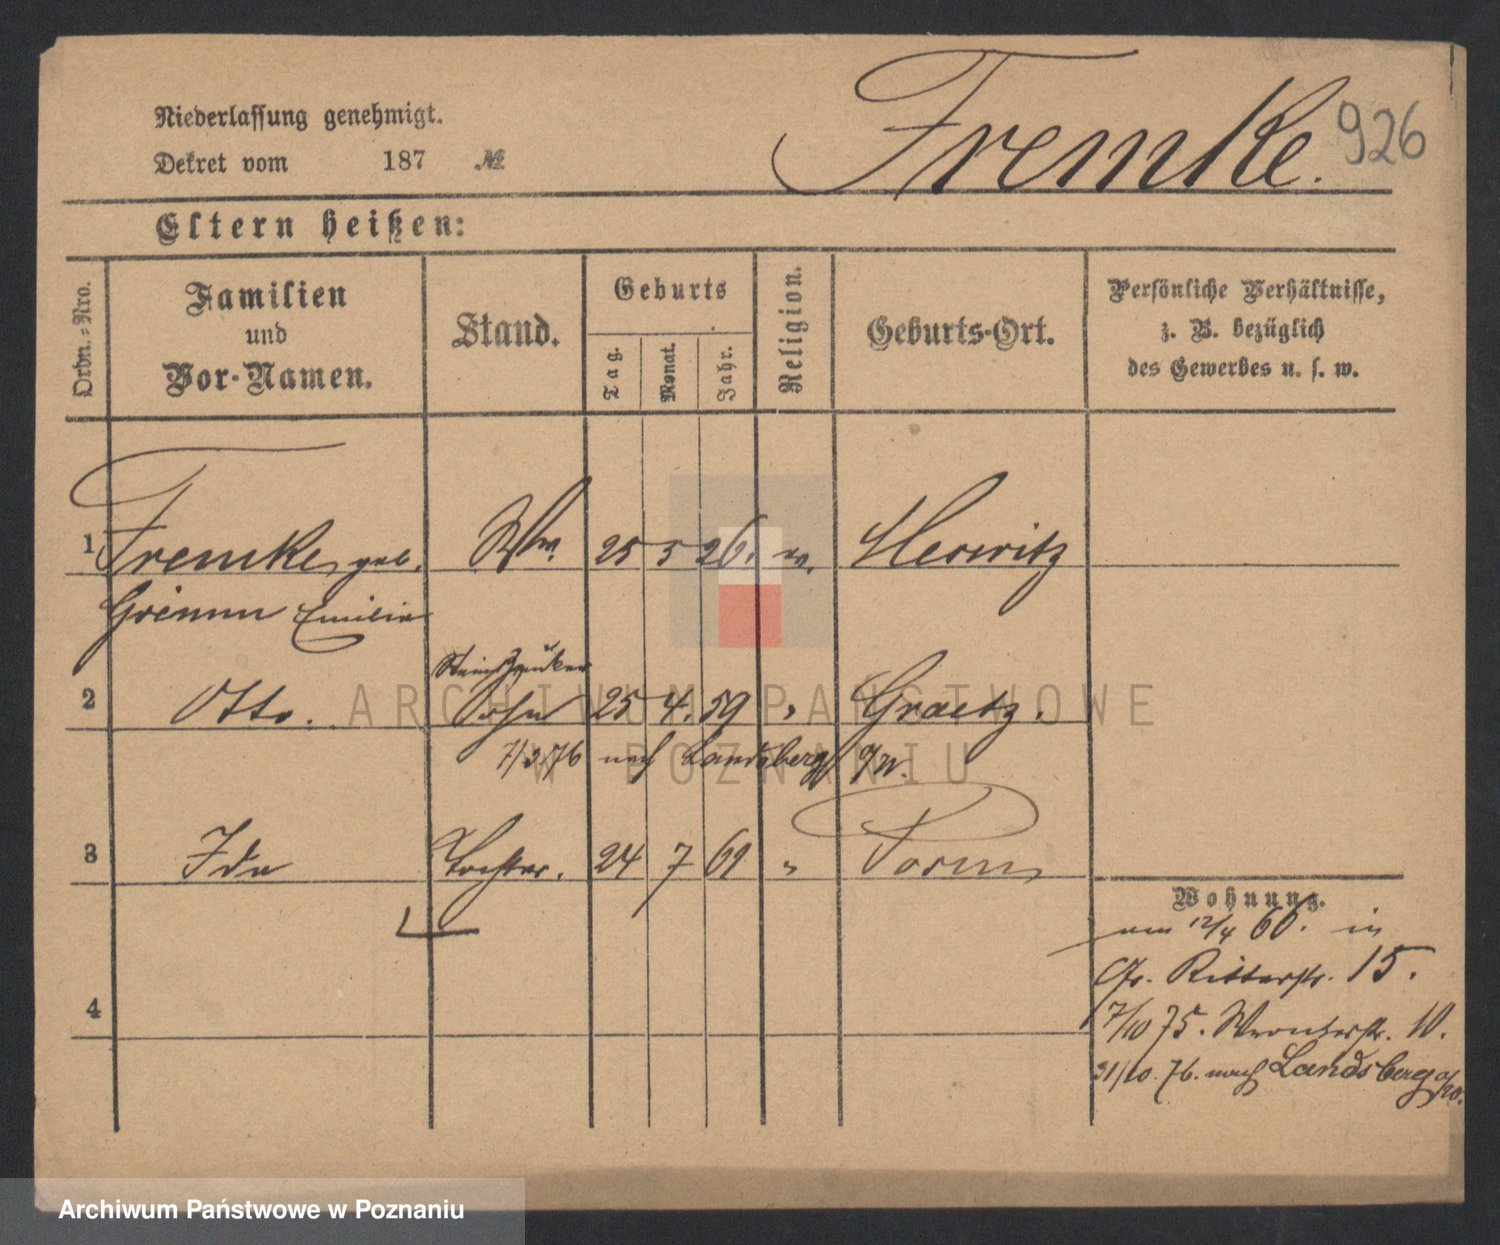 Niederlassung genehmigt.
Dekret vom 187 №
Fremke. 926
Eltern heißen:
Ordn.-Nro.
Familien
und
Vor-Namen.
Stand.
Geburts
Tag.
Monat.
Jahr.
Religion.
Geburts-Ort.
Persönliche Verhältnisse,
z. B. bezüglich
des Gewerbes u. s. w.
1 Fremke, geb. Ww. 25 5 26.
Grimm Emilie
2 Otto. Sohn 25 4. 59 " Graetz.
7/3 76 nach Landsberg a/W.
3 Ida Tochter. 24 7 61 " Posen
Wohnung.
am 12/4 66. in
Gr. Ritterstr. 15.
7/10 75. Wronkerstr. 10.
31/10. 76. nach Landsberg a/W.
4
ARCHIWUM PAŃSTWOWE
W POZNANIU
Archiwum Państwowe w Poznaniu